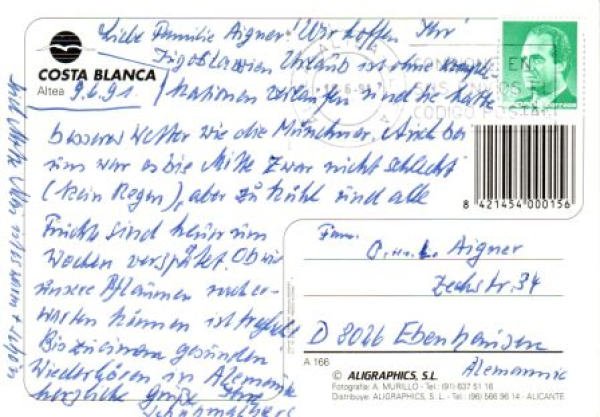 Liebe Familie Aigner! Wir hoffen Ihr
Jugoslawien Urlaub ist ohne Kompli-
kationen verlaufen und Sie hatten
besseres Wetter wie die Münchner. Auch bei
uns war es bis Mitte zwar nicht schlecht
(kein Regen), aber zu kühl und alle
Früchte sind heuer um
Wochen verspätet. Ob wir
unsere Pflaumen noch er-
warten können ist fraglich
Bis zu einem gesunden
Wiedersehen in Alemania
herzliche Grüße Ihre
COSTA BLANCA
Altea
9.6.91
ALTEA
CODIGO POSTAL
correos
8 421454 000156
Fam.
O. u. L. Aigner
Zechstr. 34
D 8026 Ebenhausen
Alemannie
A 166
© ALIGRAPHICS, S.L.
Fotografie: A. MURILLO - Tel.: (91) 637 51 16
Distribuye: ALIGRAPHICS, S.L. - Tel.: (96) 566 96 14 - ALICANTE